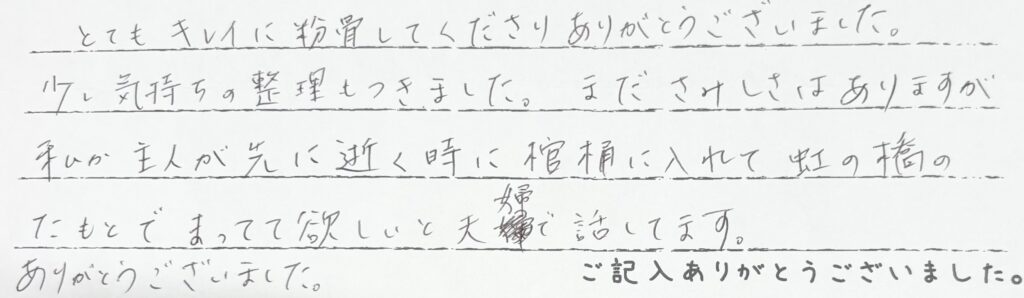 とてもキレイに粉骨してくださりありがとうございました。
少し気持ちの整理もつきました。まださみしさはありますが
私か主人が先に逝く時に棺桶に入れて虹の橋の
たもとでまってて欲しいと夫婦で話してます。
ありがとうございました。
ご記入ありがとうございました。